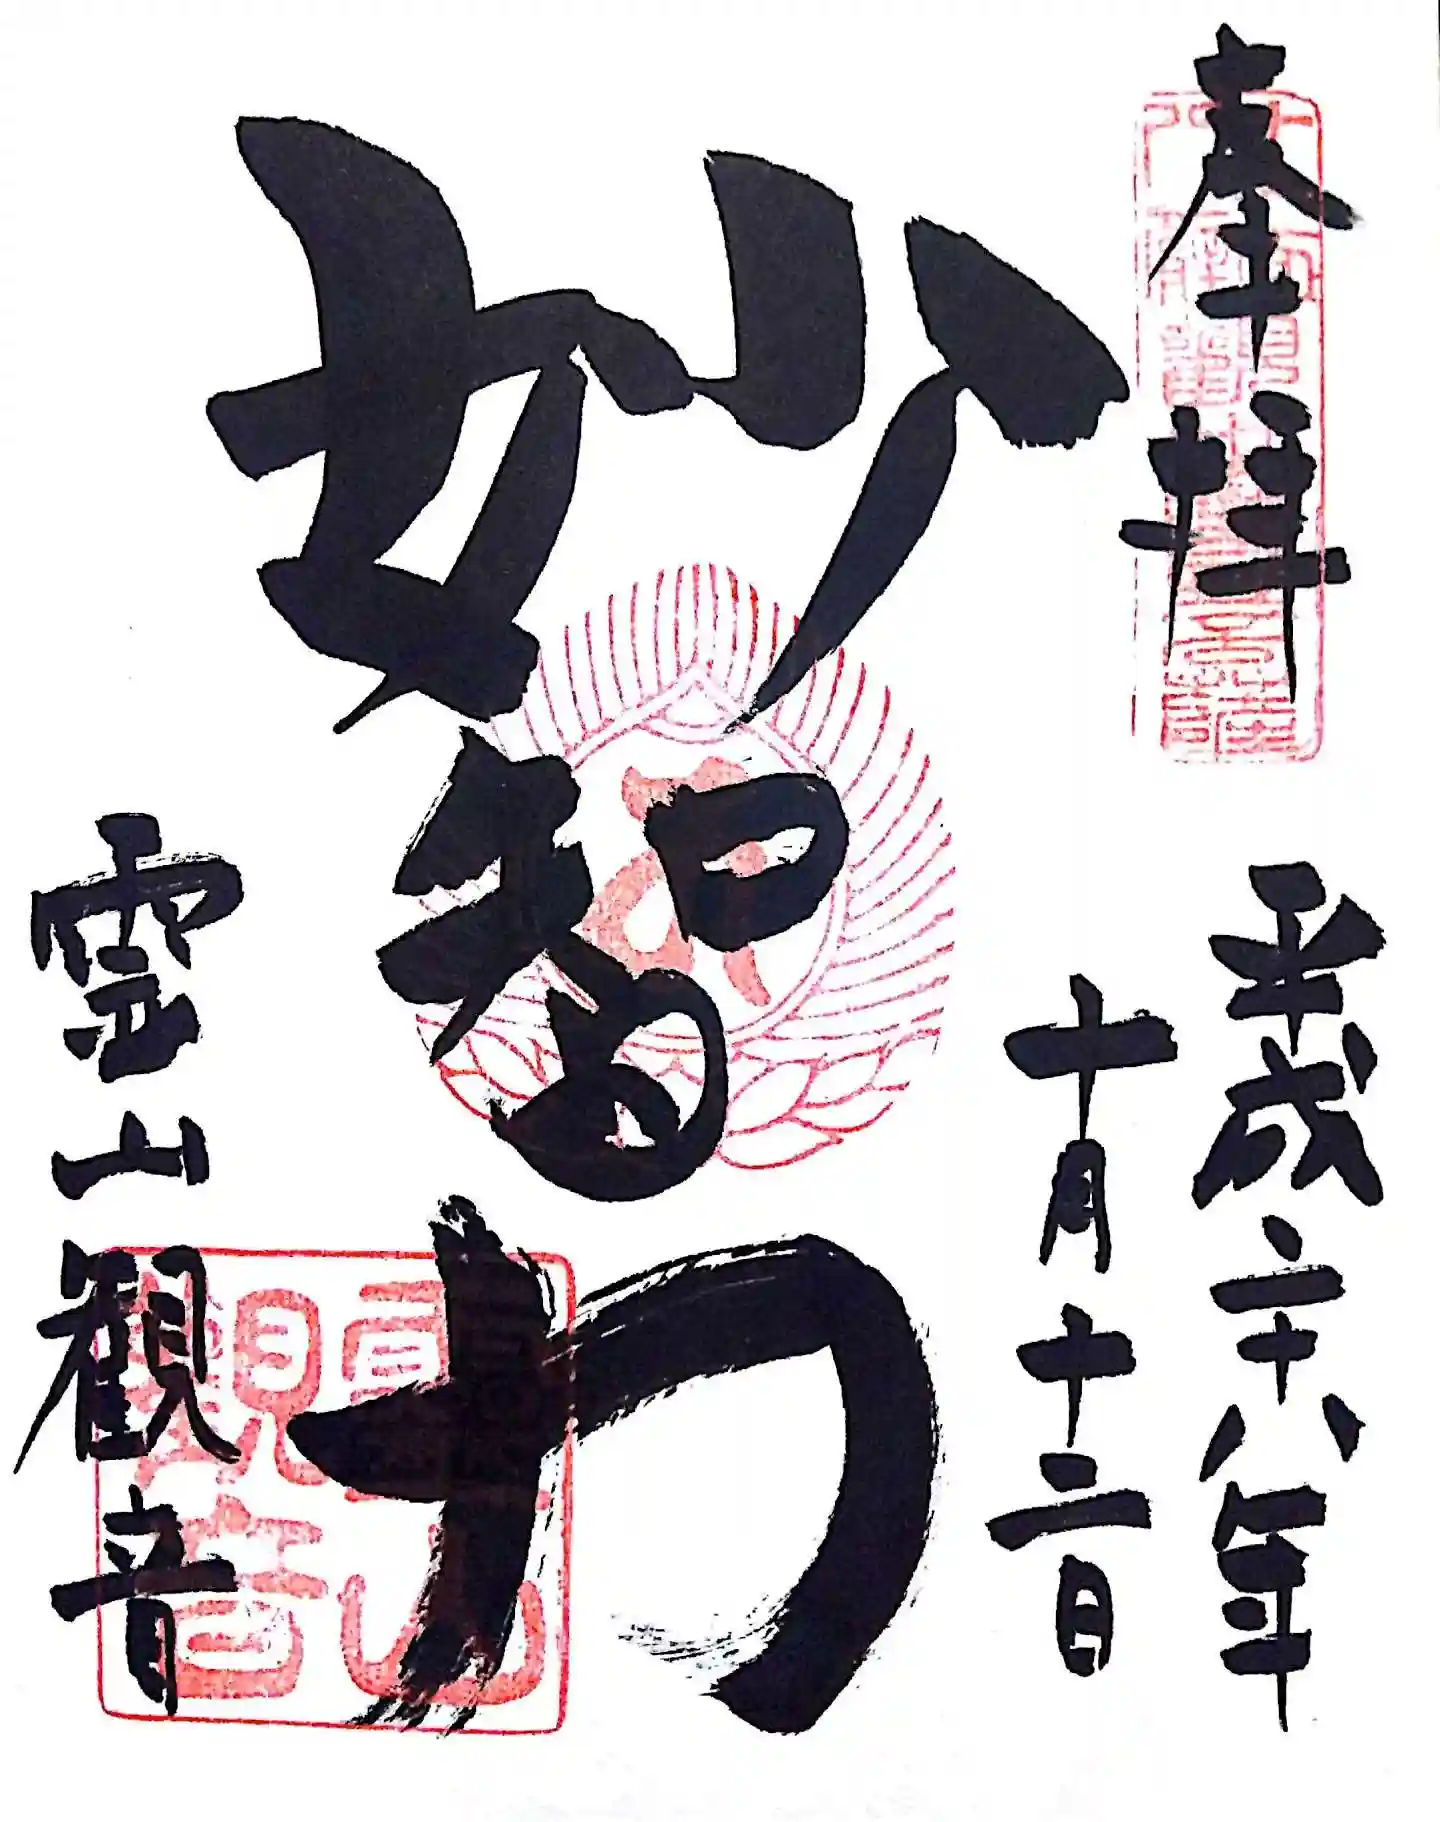 奉拝
平成二十六年
十月十二日
妙智力
霊山観音